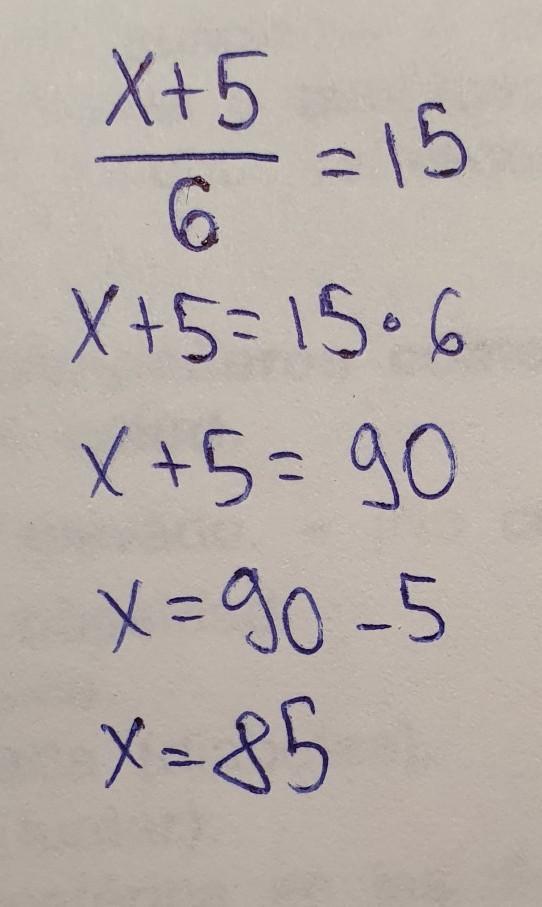 x+5
6
=15
x+5=15·6
x+5=90
x=90-5
x=85